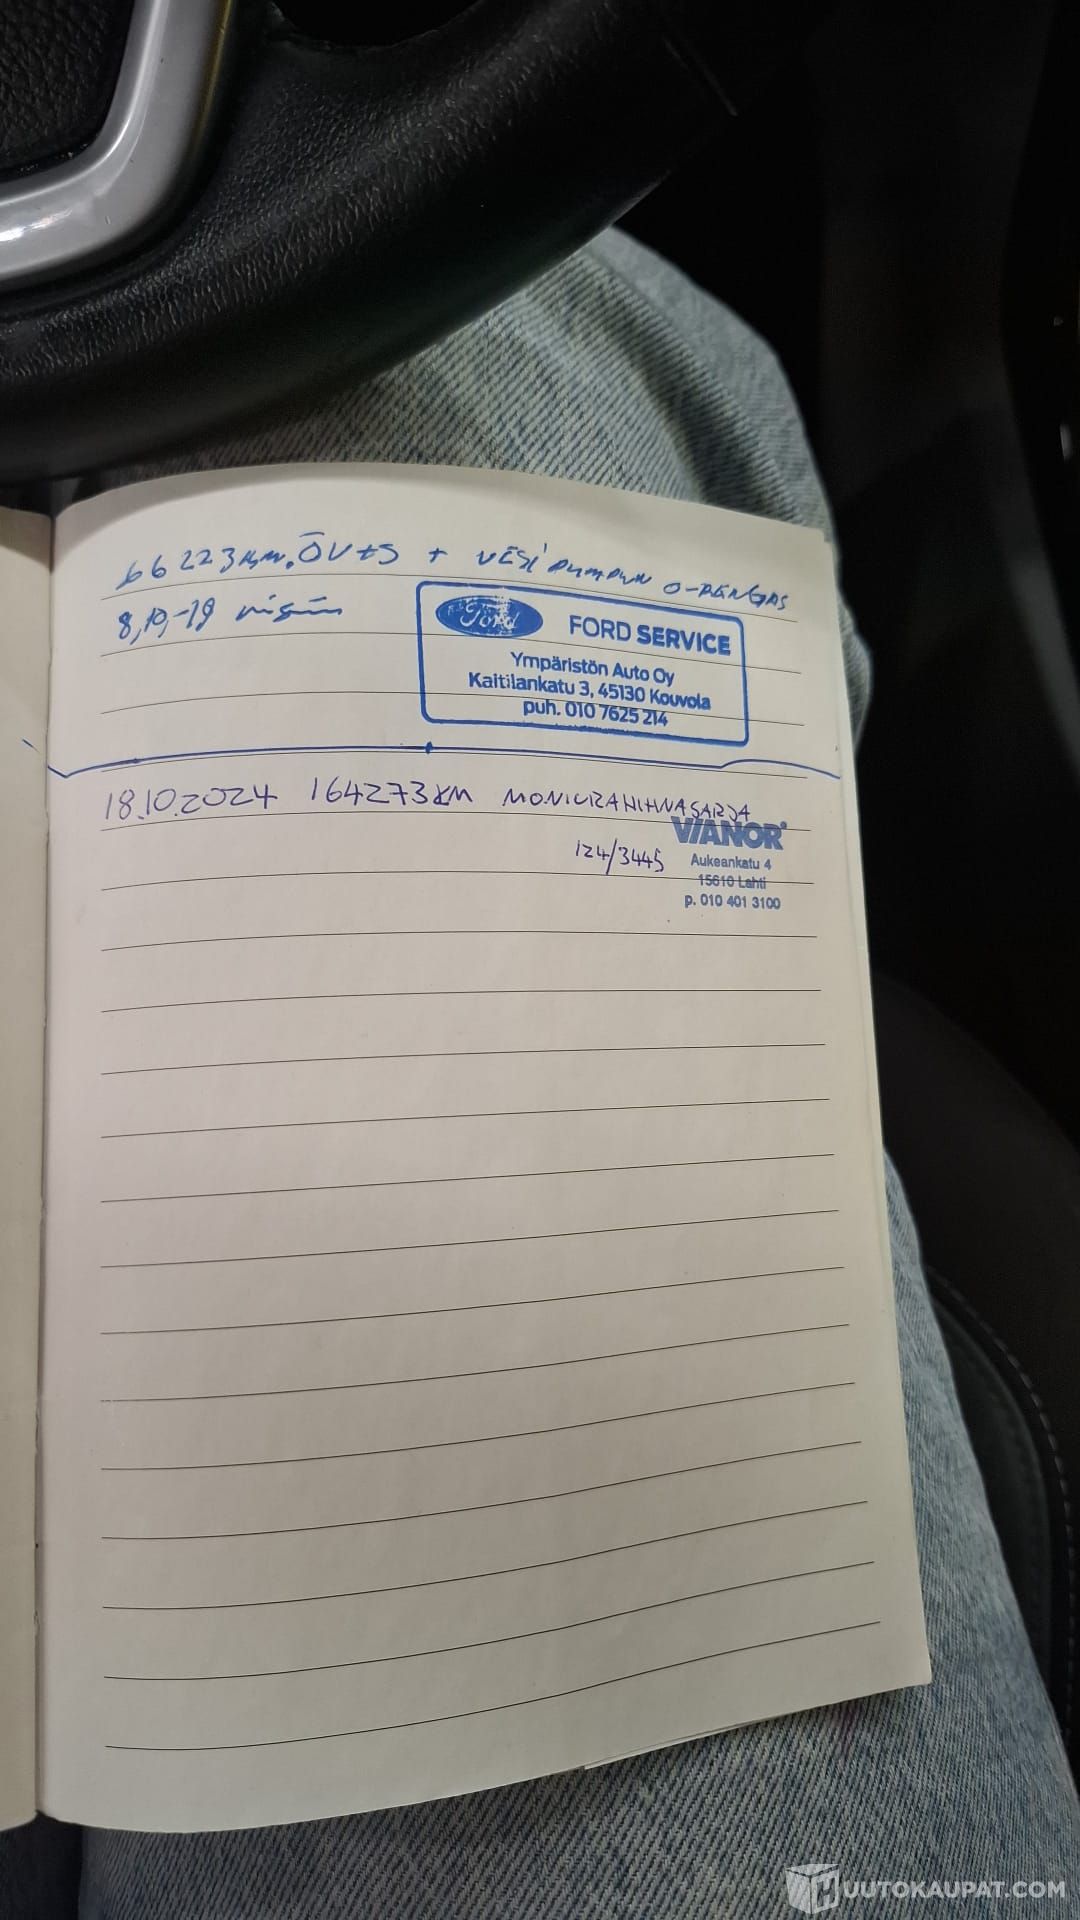 66223km. ÖVTS + VESIPUMPUN O-RENGAS
8,10,-19
Ford
FORD SERVICE
Ympäristön Auto Oy
Kaitilankatu 3, 45130 Kouvola
puh. 010 7625 214
18.10.2024 164273KM MONIURAHIHNASARJA
124/3445
VIANOR
Aukeankatu 4
15610 Lahti
p. 010 401 3100
HUUTOKAUPAT.COM